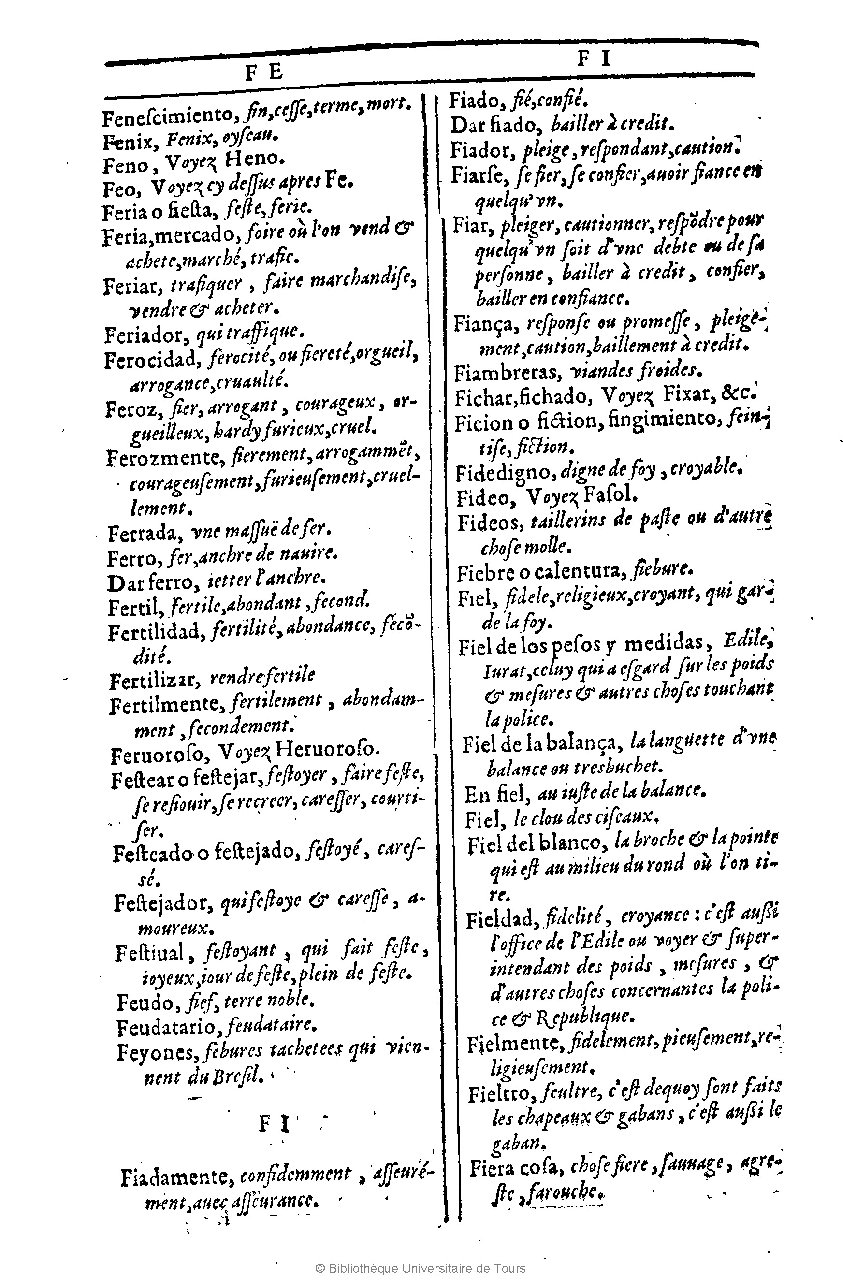 F E
Feneſcimiento, fin,ceſſe,terme,mort.
Fenix, Fenix, oyſeau.
Feno, Voyez Heno.
Feo, Voyez cy deſſus apres Fe.
Feria o fieſta, feſte, ferie.
Feria,mercado, foire où l'on vend &
achete,marché, trafic.
Feriar, trafiquer, faire marchandiſe,
vendre & acheter.
Feriador, qui traffique.
Ferocidad, ferocité, ou fiereté,orgueil,
arrogance,cruaulté.
Feroz, fier, arrogant, courageux, or-
gueilleux, hardy furieux,cruel.
Ferozmente, fierement, arrogammẽt,
courageuſement,furieuſement,cruel-
lement.
Ferrada, vne maſſuë de fer.
Ferro, fer,anchre de nauire.
Dar ferro, ietter l'anchre.
Fertil, fertile,abondant, fecond.
Fertilidad, fertilité, abondance, fecõ-
dité.
Fertilizar, rendre fertile
Fertilmente, fertilement, abondam-
ment, fecondement.
Feruoroſo, Voyez Heruoroſo.
Feſtear o feſtejar, feſtoyer, faire feſte,
ſe reſiouir,ſe recreer, careſſer, courti-
ſer.
Feſteado o feſtejado, feſtoyé, careſ-
sé.
Feſtejador, qui feſtoye & careſſe, a-
moureux.
Feſtiual, feſtoyant, qui fait feſte,
ioyeux,iour de feſte,plein de feſte.
Feudo, fief, terre noble.
Feudatario, feudataire.
Feyones, febures tachetees qui vien-
nent du Breſil.
F I
Fiadamente, confidemment, aſſeuré-
ment,auec aſſeurance.
F I
Fiado, fié,confié.
Dar fiado, bailler à credit.
Fiador, pleige, reſpondant,caution.
Fiarſe, ſe fier, ſe confier,auoir fiance en
quelqu'vn.
Fiar, pleiger, cautionner, reſpõdre pour
quelqu'vn ſoit d'vne debte ou de ſa
perſonne, bailler à credit, confier,
bailler en confiance.
Fiança, reſponſe ou promeſſe, pleige-
ment,caution,baillement à credit.
Fiambreras, viandes froides.
Fichar,fichado, Voyez Fixar, &c.
Ficion o fiction, fingimiento, fein-
tiſe, fiction.
Fidedigno, digne de foy, croyable.
Fideo, Voyez Faſol.
Fideos, taillerins de paſte ou d'autre
choſe molle.
Fiebre o calentura, fiebure.
Fiel, fidele,religieux,croyant, qui gar-
de la foy.
Fiel de los peſos y medidas, Edile,
Iurat,celuy qui a eſgard ſur les poids
& meſures & autres choſes touchant
la police.
Fiel de la balança, la languette d'vne
balance ou tresbuchet.
En fiel, au iuſte de la balance.
Fiel, le clou des ciſeaux.
Fiel del blanco, la broche & la pointe
qui eſt au milieu du rond où l'on ti-
re.
Fieldad, fidelité, croyance : c'eſt auſſi
l'office de l'Edile ou voyer & ſuper-
intendant des poids, meſures, &
d'autres choſes concernantes la poli-
ce & Republique.
Fielmente, fidelement, pieuſement,re-
ligieuſement.
Fieltro, feultre, c'eſt dequoy ſont faits
les chapeaux & gabans, c'eſt auſſi le
gaban.
Fiera coſa, choſe fiere, ſauuage, agre-
ſte, farouche.
© Bibliothèque Universitaire de Tours